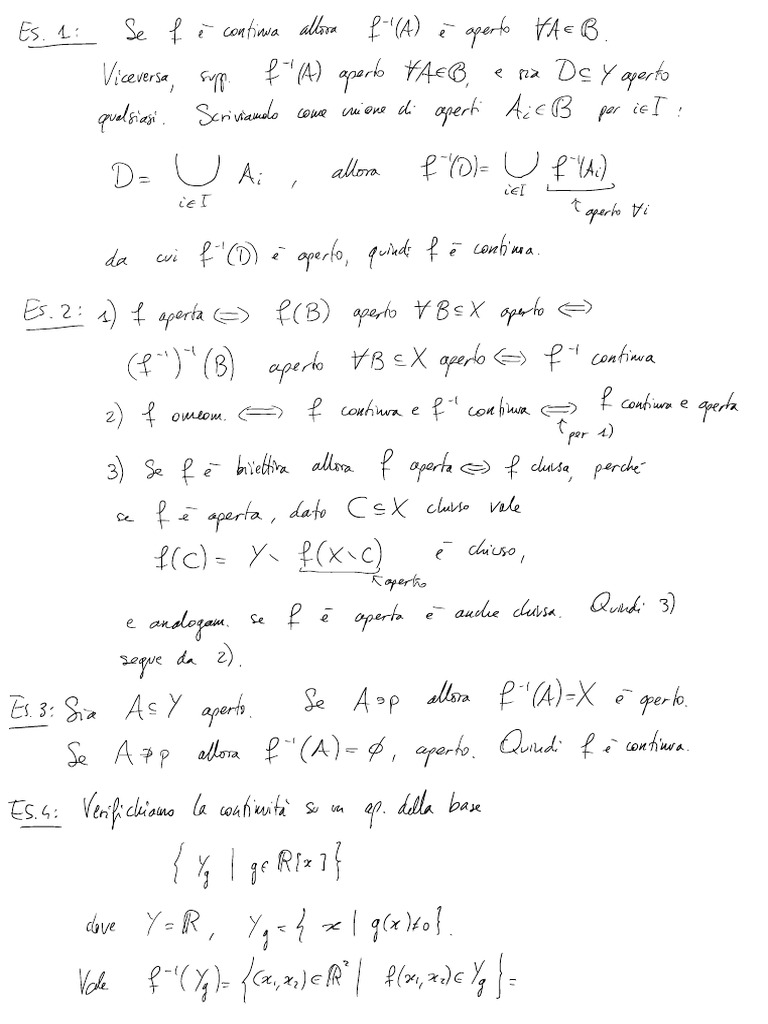 Es. 1: Se f è continua allora f⁻¹(A) è aperto ∀A∈ℬ.
Viceversa, supp. f⁻¹(A) aperto ∀A∈ℬ, e sia D⊆Y aperto
qualsiasi. Scriviamolo come unione di aperti Aᵢ∈ℬ per i∈I :
D = ⋃_{i∈I} Aᵢ , allora f⁻¹(D) = ⋃_{i∈I} f⁻¹(Aᵢ)
↑ aperto ∀i
da cui f⁻¹(D) è aperto, quindi f è continua.
Es. 2: 1) f aperta ⟺ f(B) aperto ∀B⊆X aperto ⟺
(f⁻¹)⁻¹(B) aperto ∀B⊆X aperto ⟺ f⁻¹ continua
2) f omeom. ⟺ f continua e f⁻¹ continua ⟺ f continua e aperta
↑ per 1)
3) Se f è biiettiva allora f aperta ⟺ f chiusa, perché
se f è aperta, dato C⊆X chiuso vale
f(C) = Y∖f(X∖C) è chiuso,
↑ aperto
e analogam. se f è aperta è anche chiusa. Quindi 3)
segue da 2).
Es. 3: Sia A⊆Y aperto. Se A∋p allora f⁻¹(A)=X è aperto.
Se A∌p allora f⁻¹(A)=∅, aperto. Quindi f è continua.
Es. 4: Verifichiamo la continuità su un ap. della base
{ Y_g | g∈ℝ[x] }
dove Y=ℝ, Y_g = { x | g(x)≠0 }.
Vale f⁻¹(Y_g) = { (x₁,x₂)∈ℝ² | f(x₁,x₂)∈Y_g } =